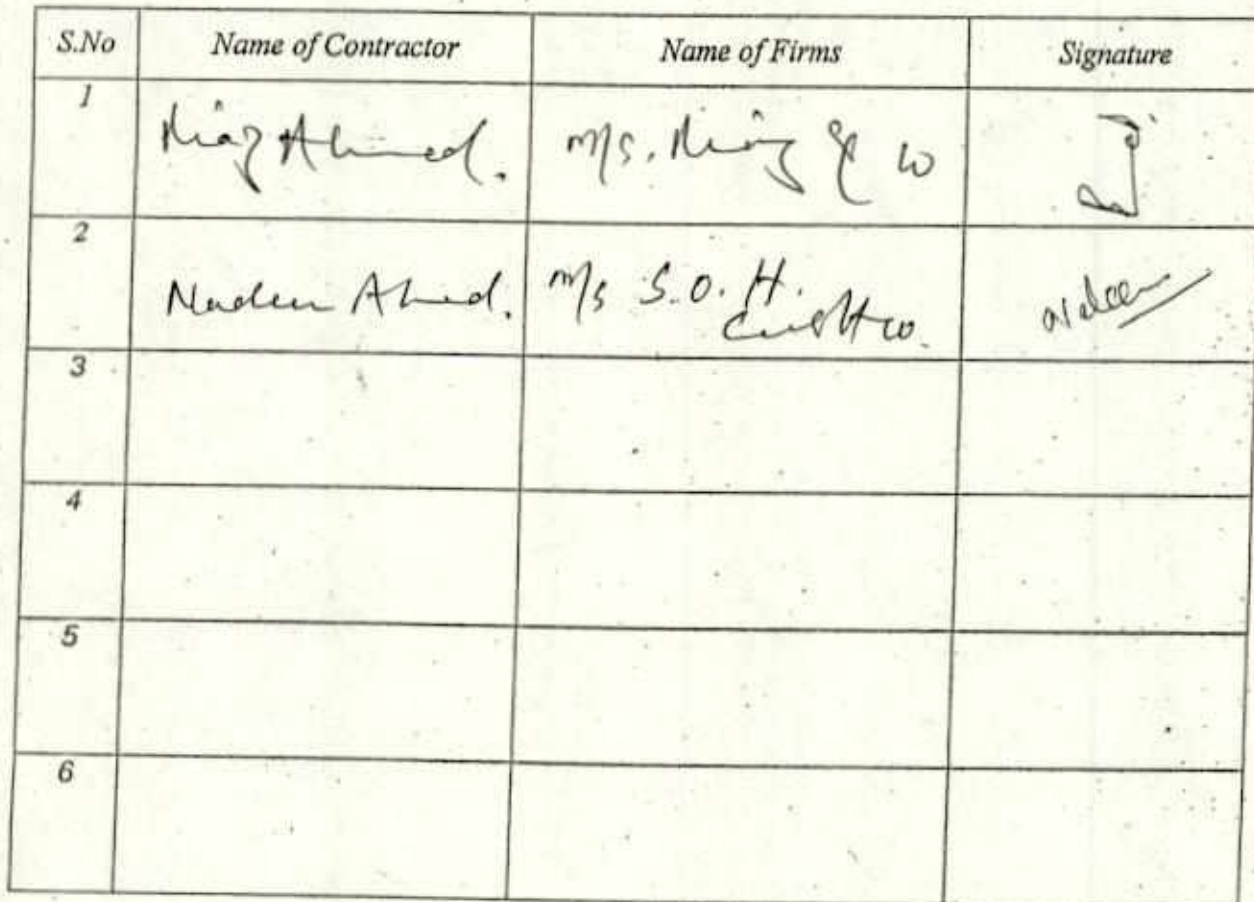 S.No Name of Contractor Name of Firms Signature
1 Niaz Ahmed. M/S. Niaz & co
2 Nadeem Ahmed. M/s S.O.H.
Const co.
3
4
5
6